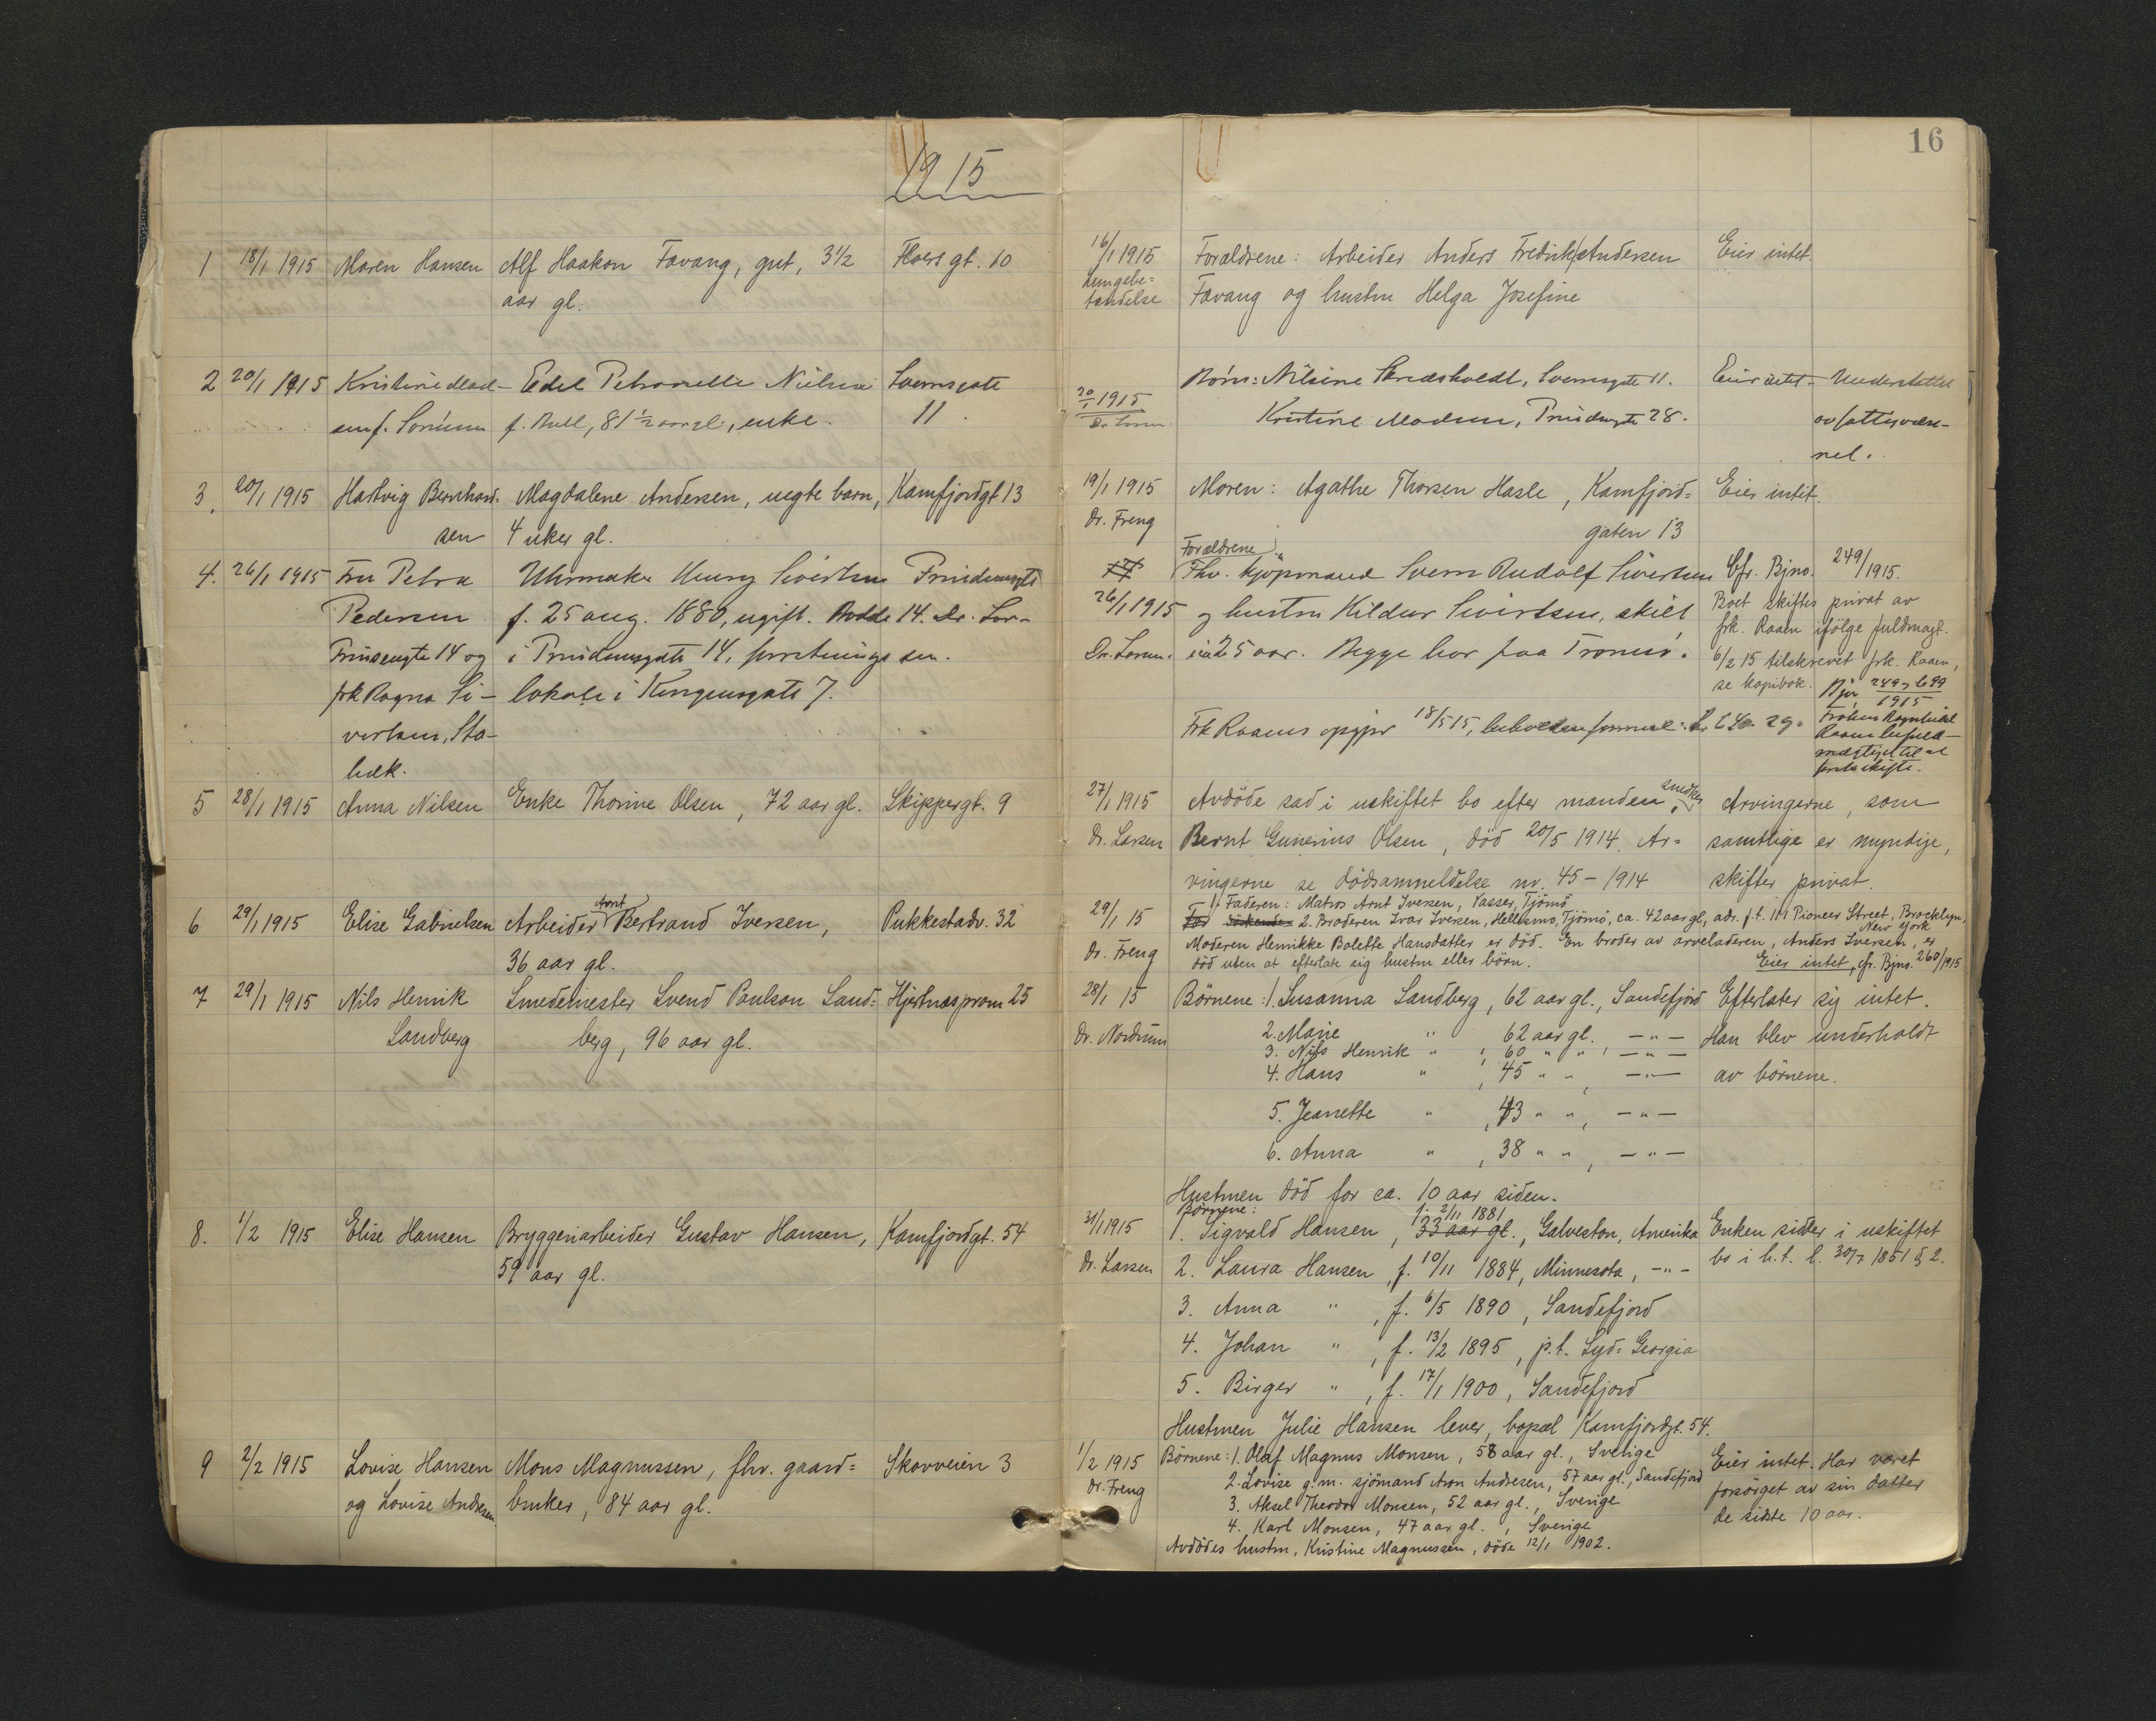 1915
16
1 18/1 1915 Maren Hansen Alf Haakon Favang, gut, 3 1/2 Thors gt. 10
aar gl.
16/1 1915 Forældrene: Arbeider Anders Fredrik Andersen Eier intet.
Lungebe=
tændelse Favang og hustru Helga Josefine
2 20/1 1915 Kristine Mad- Edel Petronelle Nielsen Svensgate
sen f. f. Bull, 81 1/2 aar gl., enke. 11.
Børn: Nilsine Svensgate 11. Eier intet - Understøttet
20/1 1915
Kristine Madsen, Prinsensgte 28. av fattigvæse-
net.
3. 20/1 1915 Hartvig Bernhard- Magdalene Andersen, uegte barn, Kamfjordgt 13
sen 4 uker gl.
19/1 1915 Moren: Agathe Thorsen Hasle, Kamfjord= Eier intet.
Dr. Freng gaten 13
4. 26/1 1915 Fru Petra Uhrmaker Henry Sivertsen Prinsensgt
Pedersen f. 25 aug. 1880, ugift. Bodde 14. Dr. Lor-
Prinsensgte 14 og i Prinsensgate 14, forretnings sen.
frk Ragna Si- lokale i Kongensgate 7.
vertsen, Sta-
bæk.
Forældrene
Fhv. kjøpmand Svern Rudolf Sivertsen Cfr. Bjno. 249/1915.
26/1 1915 og hustru Hildur Sivertsen, skilt Boet skiftes privat av
frk. Raaen ifølge fuldmagt.
Dr. Lorens. i ca 25 aar. Begge bor paa Tromsö. 6/2 15 tilskrevet frk. Raaen,
se kopibok. Bjn 249 og 699
1915
Frk Raaens opgjør 18/5 15, Frøken Ragnhild
Raaen befuld-
mægtiget til at
5 28/1 1915 Anna Nilsen Enke Thorine Olsen, 72 aar gl. Skippergt. 9
27/1 1915 Avdöde sad i uskiftet bo efter manden, snedker Arvingerne, som
Dr. Larsen Bernt Gunerius Olsen, död 20/5 1914. Ar= samtlige er myndige,
vingerne se dödsanmeldelse nr. 45 - 1914 skifter privat.
6 29/1 1915 Elise Gabrielsen Arbeider Arnt Bertrand Iversen, Pukkestadv. 32
36 aar gl.
1. Faderen: Matros Arnt Iversen, Vasser, Tjömö
29/1 15 Far Söskende 2. Broderen Ivar Iversen, Hellesmo, Tjömö, ca. 42 aar gl, adr. p.t. 111 Pioneer Street, Brocklyn,
New York
Moderen Henrikke Bolette Hansdatter er död. En broder av arveladeren, Anders Iversen, er
Dr. Freng död uten at efterlate sig hustru eller börn. Eier intet, cfr. Bjno. 260/1915
7 29/1 1915 Nils Henrik Smedemester Svend Paulson Sand= Hjertnæs prom 25
Sandberg berg, 96 aar gl.
28/1 15 Börnene: 1. Susanna Sandberg, 62 aar gl., Sandefjord Efterlater sig intet.
Dr. Nordrum 2. Marie " 62 aar gl. - " - Han blev underholdt
3. Nils Henrik " , 60 " " , - " -
4. Hans " , 45 " " , - " - av börnene.
5. Jeanette " , 43 " " , - " -
6. Anna " , 38 " " , - " -
Hustruen död for ca. 10 aar siden.
8. 1/2 1915 Elise Hansen Bryggeriarbeider Gustav Hansen, Kamfjordgt. 54
59 aar gl.
Börnene: f. 2/11 1881
31/1 1915 1. Sigvald Hansen, 33 aar gl., Galveston, Amerika Enken sidder i uskiftet
Dr. Larsen 2. Laura Hansen, f. 10/11 1884, Minnesota, - " - bo i h.t. l. 30/7 1851 § 2.
3. Anna " , f. 6/5 1890, Sandefjord
4. Johan " , f. 13/2 1895, p.t. Syd= Georgia
5. Birger " , f. 17/1 1900, Sandefjord
Hustruen Julie Hansen lever, bopæl Kamfjordgt. 54.
9 2/2 1915 Lovise Hansen Mons Magnussen, fhv. gaard= Skovveien 3
og Lovise Andresen. bruker, 84 aar gl.
1/2 1915 Börnene: 1. Olaf Magnus Monsen, 58 aar gl., Sverige Eier intet. Har været
Dr. Freng 2. Lovise g.m. sjömand Aron Andresen, 57 aar gl., Sandefjord forsörget av sin datter
3. Aksel Theodor Monsen, 52 aar gl., Sverige de sidste 10 aar.
4. Karl Monsen, 47 aar gl., Sverige
Avdödes hustru, Kristine Magnussen, döde 12/1 1902.